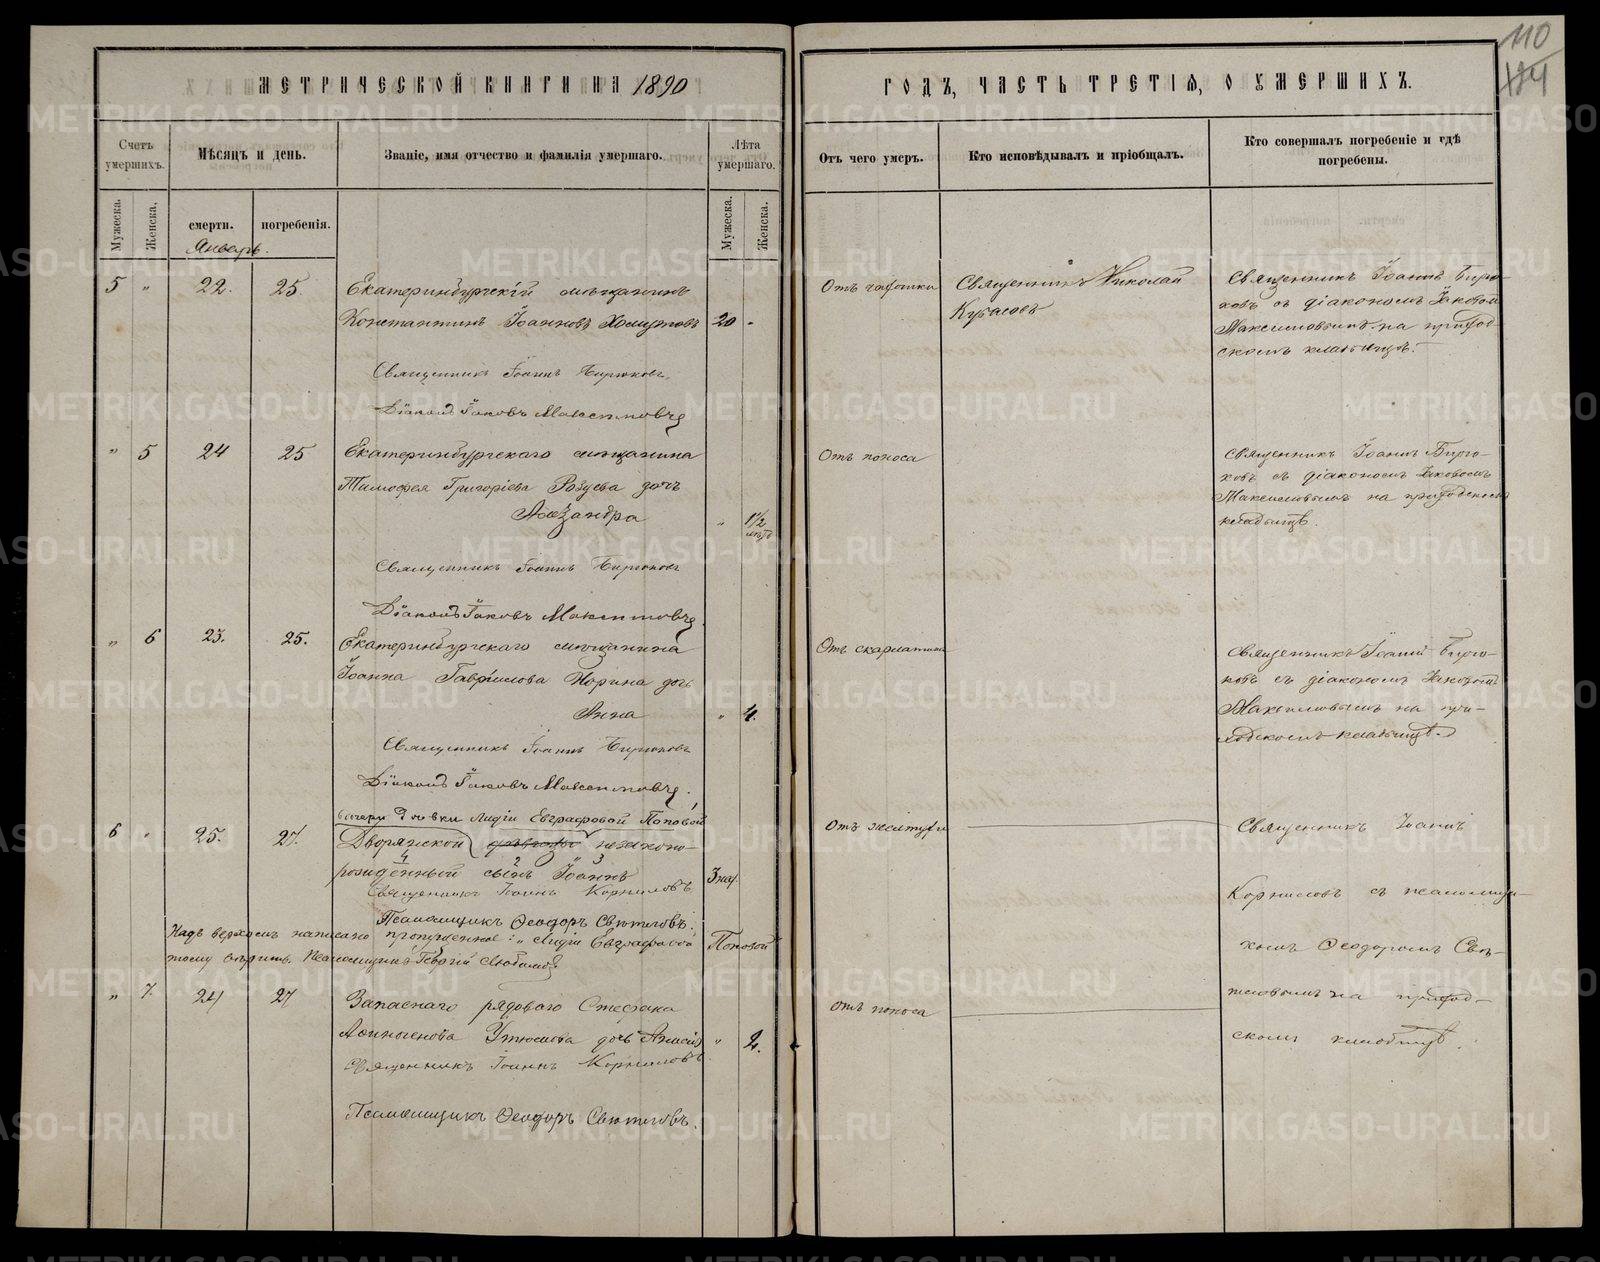 МЕТРИЧЕСКОЙ КНИГИ НА 1890
ГОДЪ, ЧАСТЬ ТРЕТІЯ, О УМЕРШИХЪ.
110
Счетъ умершихъ.
Мѣсяцъ и день.
Званіе, имя отчество и фамилія умершаго.
Лѣта умершаго.
Отъ чего умеръ.
Кто исповѣдывалъ и пріобщалъ.
Кто совершалъ погребеніе и гдѣ
погребены.
Мужеска.
Женска.
смерти.
погребенія.
Мужеска.
Женска.
Январь.
5 " 22. 25. Екатеринбургскій мѣщанинъ
Константинъ Іоанновъ Хомутовъ 20 -
Отъ чахотки
Священникъ Николай
Кубасовъ
Священникъ Іоаннъ Бирю-
ковъ съ діакономъ Іаковомъ
Максимовымъ на приход-
скомъ кладбищѣ.
Священникъ Іоаннъ Бирюковъ
Діаконъ Іаковъ Максимовъ
" 5 24 25 Екатеринбургскаго мѣщанина
Тимофея Григоріева дочь
Александра " 1 1/2
Отъ поноса
Священникъ Іоаннъ Бирю-
ковъ съ діакономъ Іаковомъ
Максимовымъ на приходскомъ
кладбищѣ.
Священникъ Іоаннъ Бирюковъ
Діаконъ Іаковъ Максимовъ.
" 6 23. 25. Екатеринбургскаго мѣщанина
Іоанна Гаврилова дочь
Анна " 4.
Отъ скарлатины
Священникъ Іоаннъ Бирю-
ковъ съ діакономъ Іаковомъ
Максимовымъ на при-
ходскомъ кладбищѣ.
Священникъ Іоаннъ Бирюковъ
Діаконъ Іаковъ Максимовъ.
дочери Лидіи Евграфовой Поповой
6 " 25. 27. Дворянской незаконо-
рожденный сынъ Іоаннъ 3 нед.
Священникъ Іоаннъ Корниловъ
Псаломщикъ Ѳеодоръ Свѣтловъ.
Надъ верхомъ написано пропущенное: "Лидіи Евграфовой Поповой
тому вѣрить. Псаломщикъ Георгій
Отъ желтухи
Священникъ Іоаннъ
Корниловъ съ псаломщи-
комъ Ѳеодоромъ Свѣт-
ловымъ на приход-
скомъ кладбищѣ.
" 7. 24 27 Запаснаго рядоваго Стефана
дочь " 2.
Отъ поноса
Священникъ Іоаннъ Корниловъ.
Псаломщикъ Ѳеодоръ Свѣтловъ.
METRIKI.GASO-URAL.RU